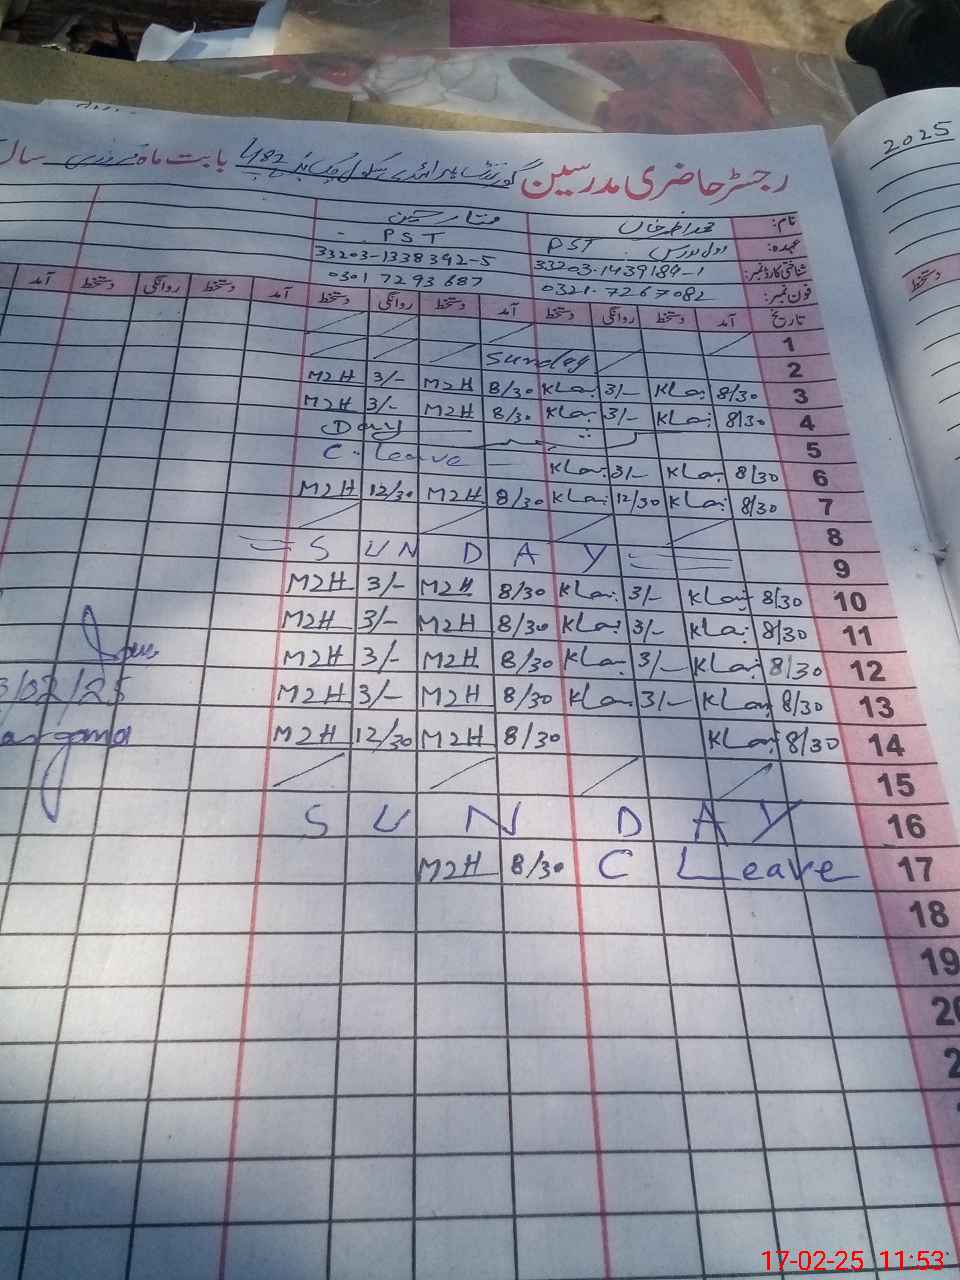 2025
رجسٹر حاضری مدرسین گورنمنٹ پرائمری سکول چک نمبر 482 بابت ماہ فروری سال
نام: محمد اظہر خان مختار حسین
عہدہ: PST PST
شناختی کارڈ نمبر: 33203-1439184-1 33203-1338392-5
فون نمبر: 0321-7267082 0301 7293687
تاریخ آمد دستخط روانگی دستخط آمد دستخط روانگی دستخط آمد دستخط روانگی دستخط آمد
دستخط
1
Sunday 2
M2H 3/- M2H 8/30 KLa 3/- KLa 8/30 3
M2H 3/- M2H 8/30 KLa 3/- KLa 8/30 4
Day 5
C. leave KLa 3/- KLa 8/30 6
M2H 12/30 M2H 8/30 KLa 12/30 KLa 8/30 7
8
S U N D A Y 9
M2H 3/- M2H 8/30 KLa 3/- KLa 8/30 10
M2H 3/- M2H 8/30 KLa 3/- KLa 8/30 11
M2H 3/- M2H 8/30 KLa 3/- KLa 8/30 12
M2H 3/- M2H 8/30 KLa 3/- KLa 8/30 13
/02/25
M2H 12/30 M2H 8/30 KLa 8/30 14
15
S U N D A Y 16
M2H 8/30 C Leave 17
18
19
17-02-25 11:53